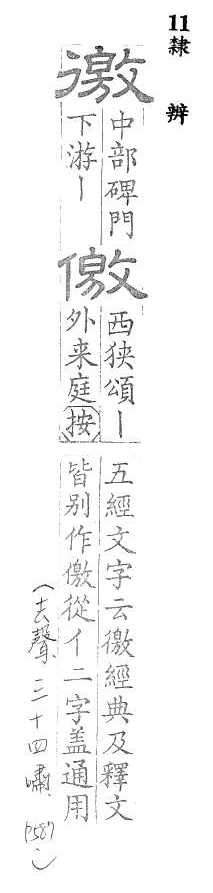 11隸 辨
徼
中部碑門
下游｜
儌
西狭頌｜
外来庭按
五經文字云徼經典及釋文
皆别作儌從亻二字盖通用
(去聲、三十四嘯、P587)